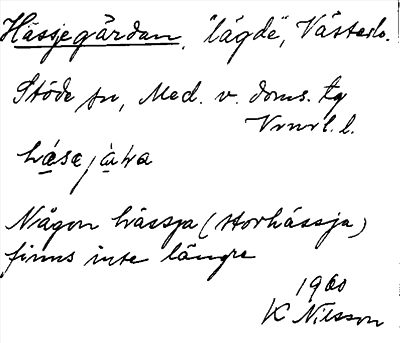 Hässjegårdan, "lägde", Västerlo.
Stöde sn, Med. v. doms. tg
Vrnrl. l.
hæsejàʹra
Någon hässja (storhässja)
finns inte längre
1960
K Nilsson